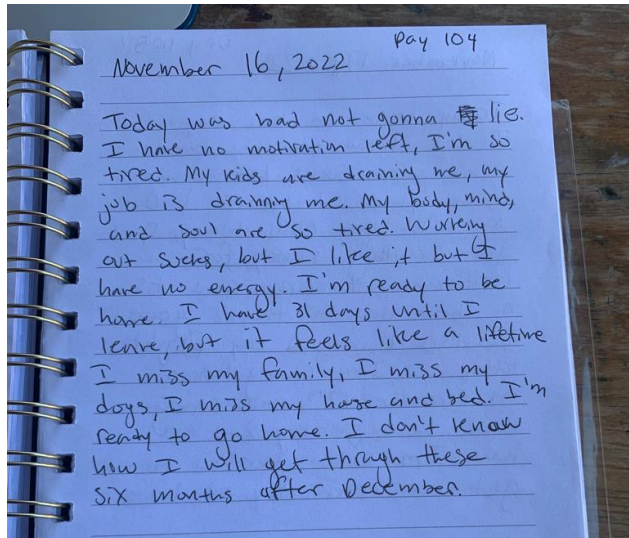 Day 104
November 16, 2022
Today was bad not gonna lie.
I have no motivation left, I'm so
tired. My kids are draining me, my
job is draining me. My body, mind,
and soul are so tired. Working
out sucks, but I like it but I
have no energy. I'm ready to be
home. I have 31 days until I
leave, but it feels like a lifetime
I miss my family, I miss my
dogs, I miss my house and bed. I'm
ready to go home. I don't know
how I will get through these
six months after December.